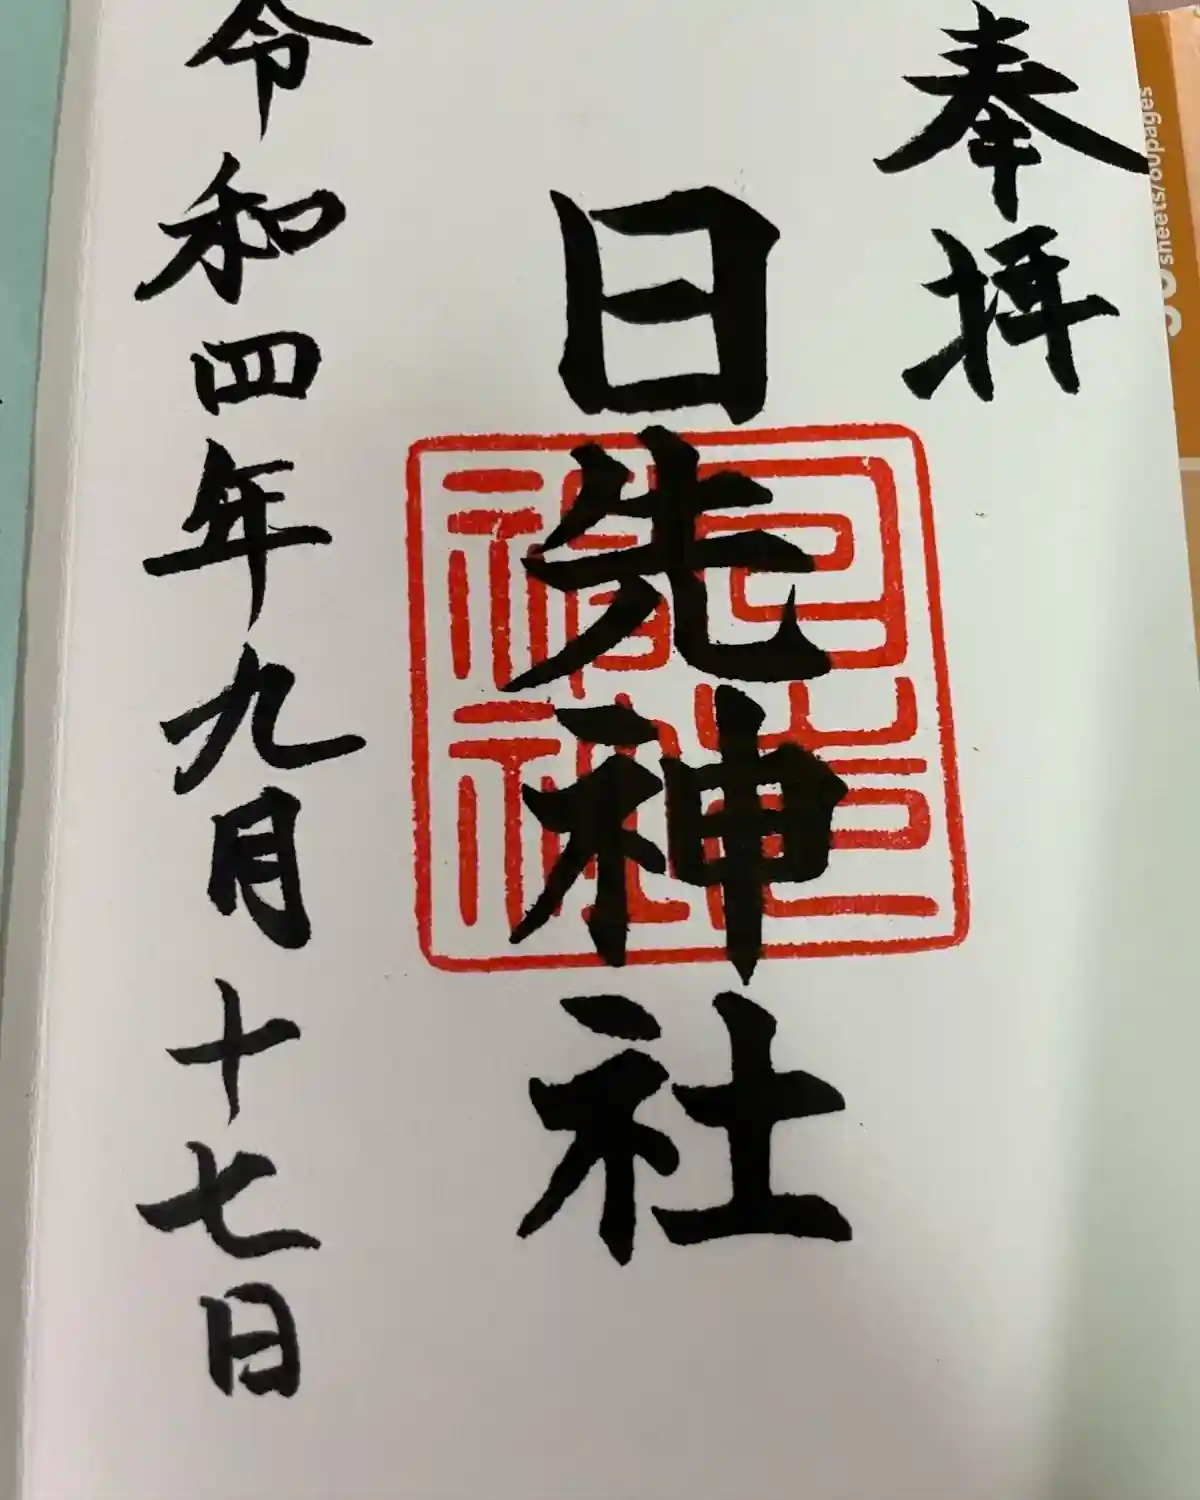 奉拝
日先神社
令和四年九月十七日
sheets/60pages